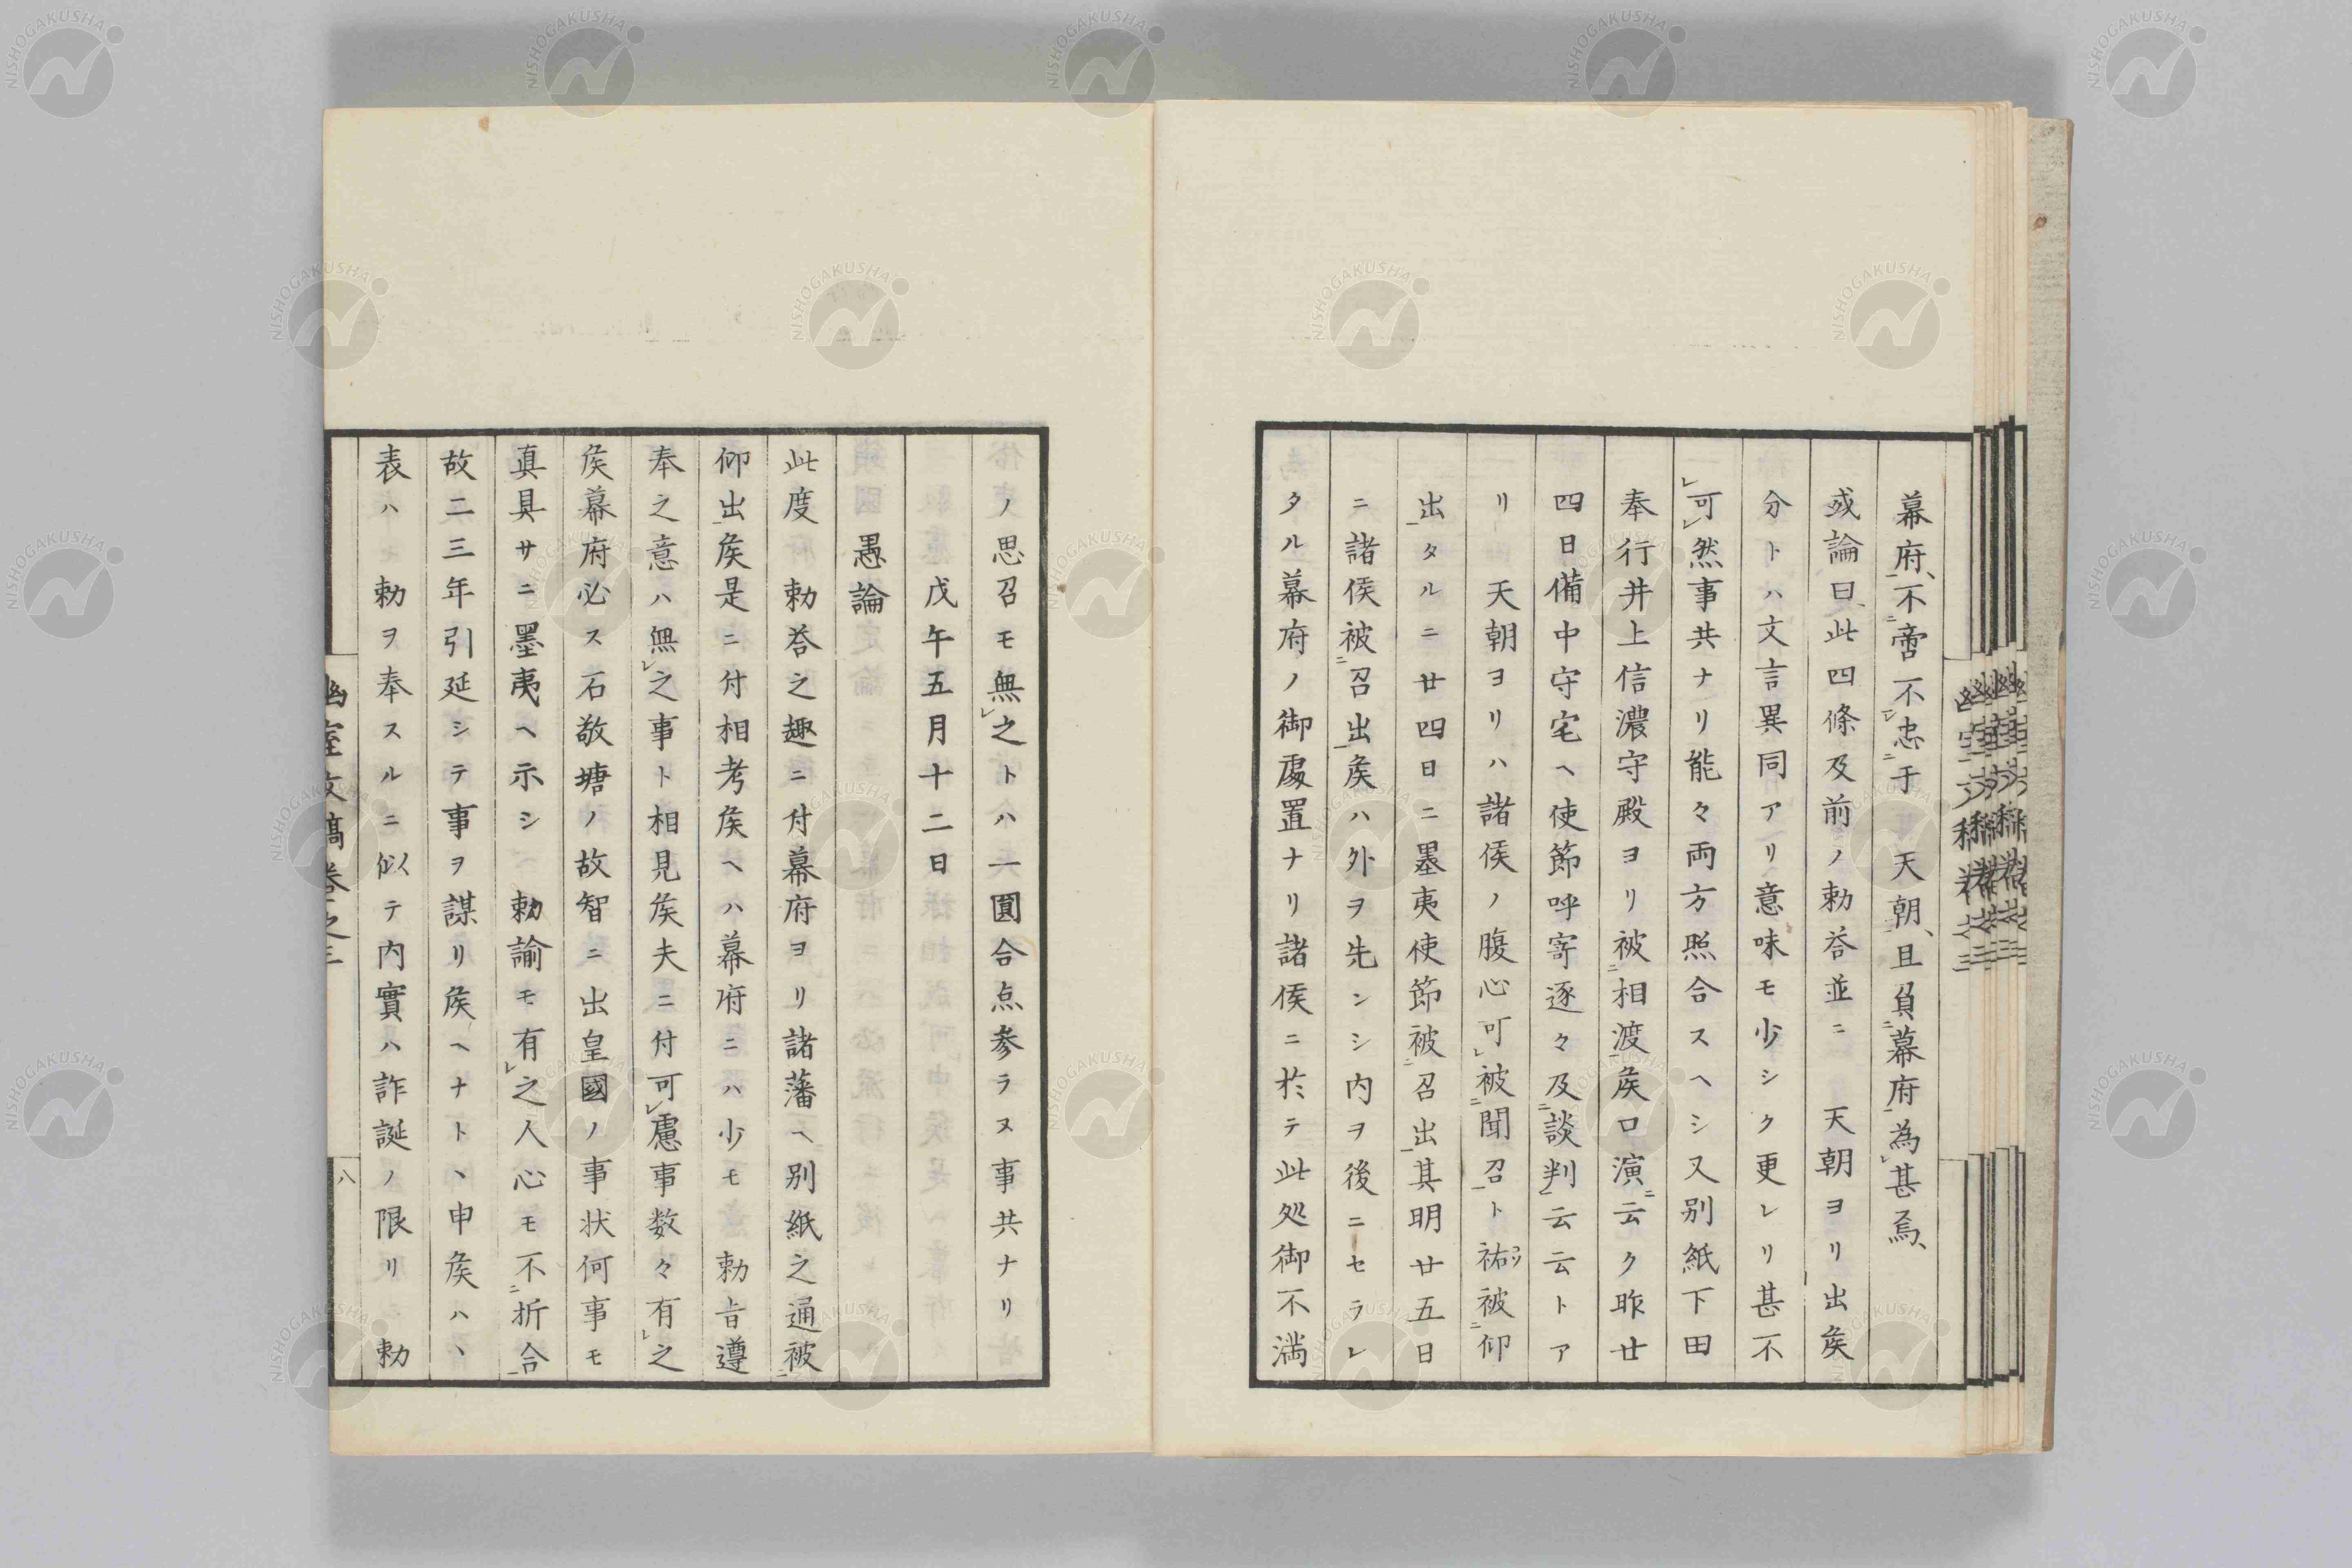 幕府、不啻不忠于　天朝、且負幕府為甚焉、
或論曰、此四條及前ノ勅荅並ニ　天朝ヨリ出矦
分トハ文言異同アリ意味モ少シク更レリ甚不
可然事共ナリ能々両方照合スヘシ又別紙下田
奉行井上信濃守殿ヨリ被相渡矦口演云ク昨廿
四日備中守宅ヘ使節呼寄逐々及談判云云トア
リ　天朝ヨリハ諸侯ノ腹心可被聞召ト祐被仰
出タルニ廿四日ニ墨夷使節被召出其明廿五日
ニ諸侯被召出矦ハ外ヲ先ンシ内ヲ後ニセラレ
タル幕府ノ御處置ナリ諸侯ニ於テ此処御不満
ノ思召モ無之トハ一圓合点参ラヌ事共ナリ
戊午五月十二日
愚論
此度　勅荅之趣ニ付幕府ヨリ諸藩ヘ別紙之通被
仰出矦是ニ付相考矦ヘハ幕府ニハ少モ　勅旨遵
奉之意ハ無之事ト相見矦夫ニ付可慮事数々有之
矦幕府必ス石敬塘ノ故智ニ出皇國ノ事状何事モ
真具サニ墨夷ヘ示シ　勅諭モ有之人心モ不折合
故二三年引延シテ事ヲ謀リ矦ヘナト丶申矦ハ丶
表ハ　勅ヲ奉スルニ似テ内實ハ詐誕ノ限リ　勅
幽室文稿巻之三
八